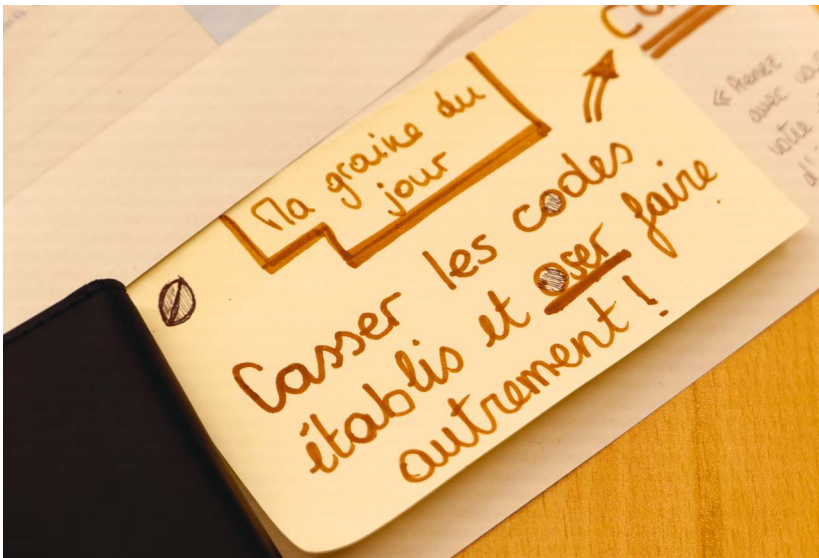 Ma graine du
jour
Casser les codes
établis et oser faire
autrement !
« Prenez
avec
votre